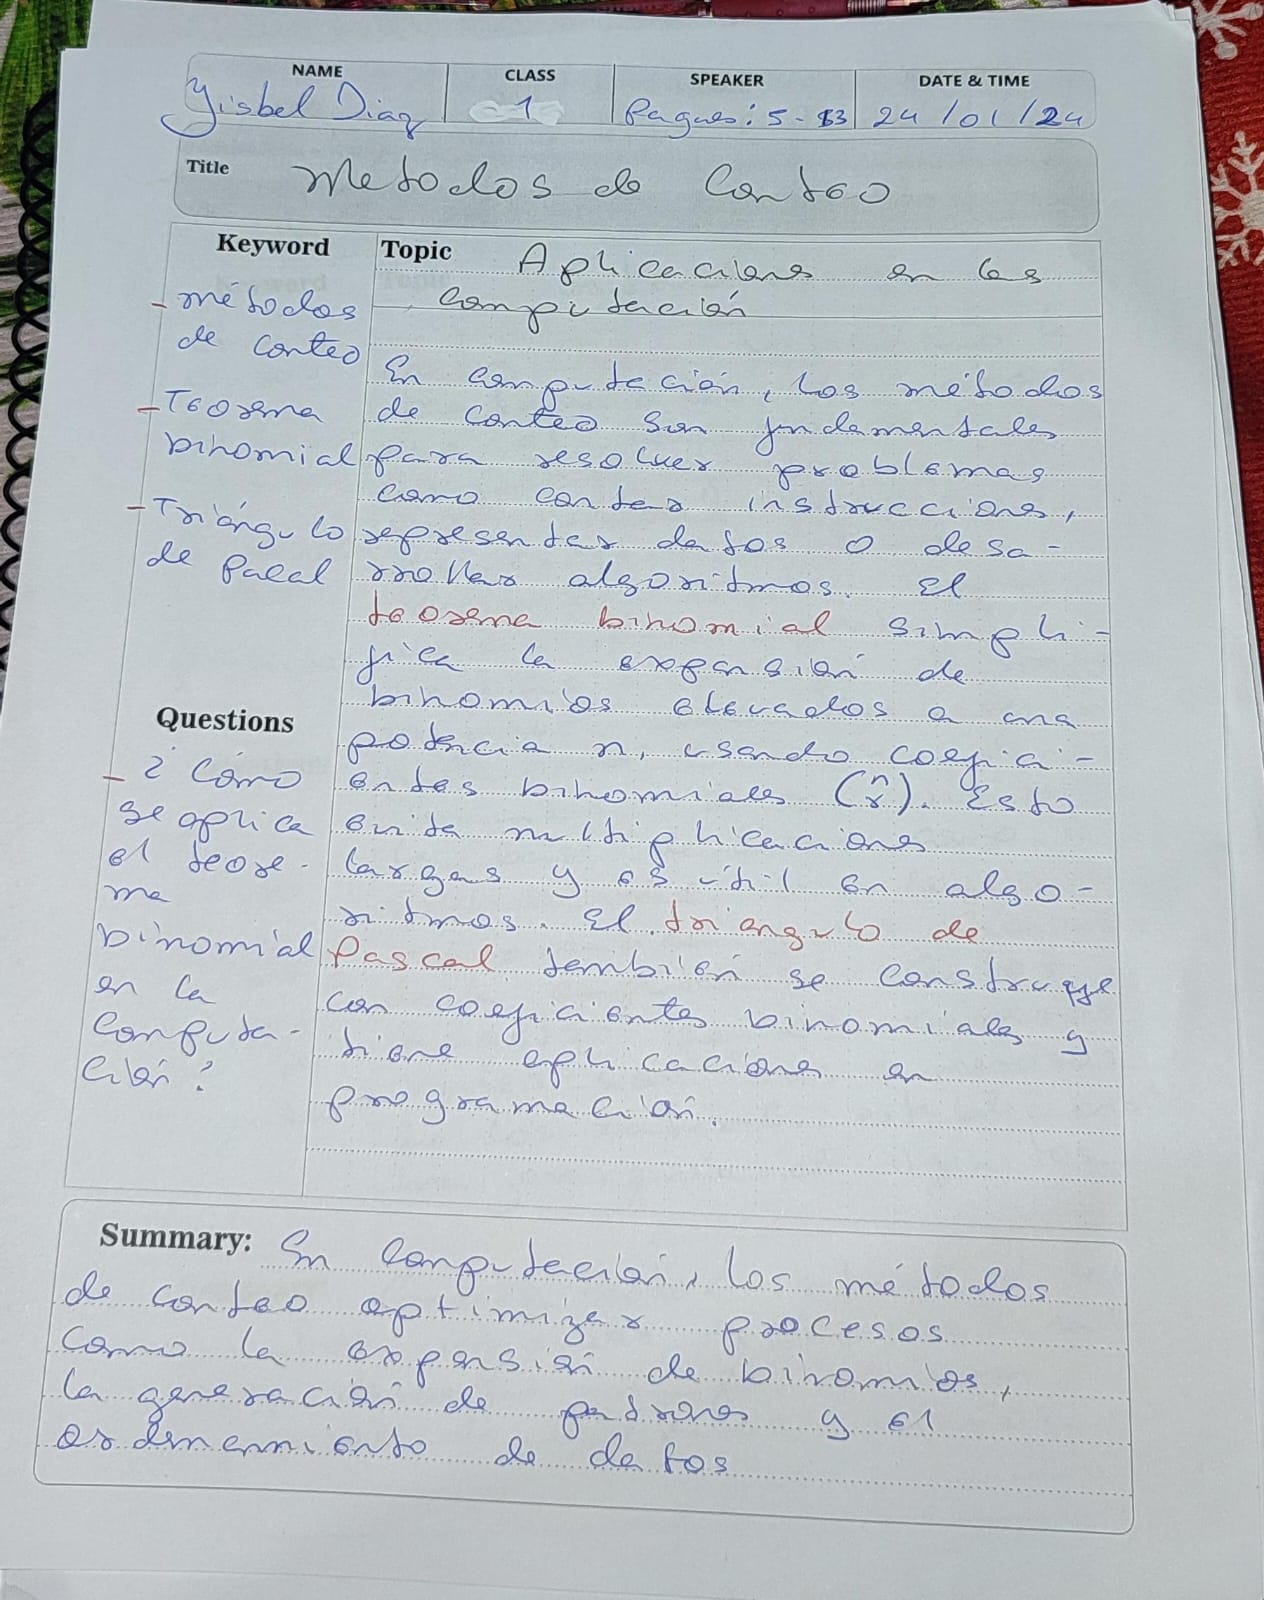 NAME CLASS SPEAKER DATE & TIME
Yisbel Diaz 1 Pagues: 5-13 24/01/24
Title Metodos de Conteo
Keyword
- métodos
de conteo
- Teorema
binomial
- Triángulo
de Pacal
Questions
- ¿Cómo
se aplica
el teore-
ma
binomial
en la
computa-
ción?
Topic Aplicaciones en las
computación
En computación, los métodos
de conteo son fundamentales
para resolver problemas
como contar instrucciones,
representar datos o desa-
rrollar algoritmos. El
teorema binomial simpli-
fica la expansión de
binomios elevados a una
potencia n, usando coefici-
entes binomiales (n r). Esto
evita multiplicaciones
largas y es útil en algo-
ritmos. El triangulo de
Pascal también se construye
con coeficientes binomiales y
tiene aplicaciones en
programación.
Summary: En computación, los métodos
de conteo optimizar procesos
como la expansión de binomios,
la generación de patrones y el
ordenamiento de datos